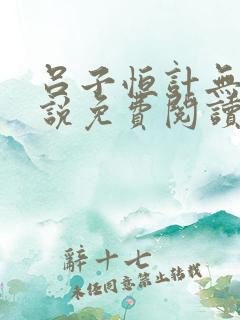 呂子恒計無
說免費閱讀
辭十七
未经同意禁止转载